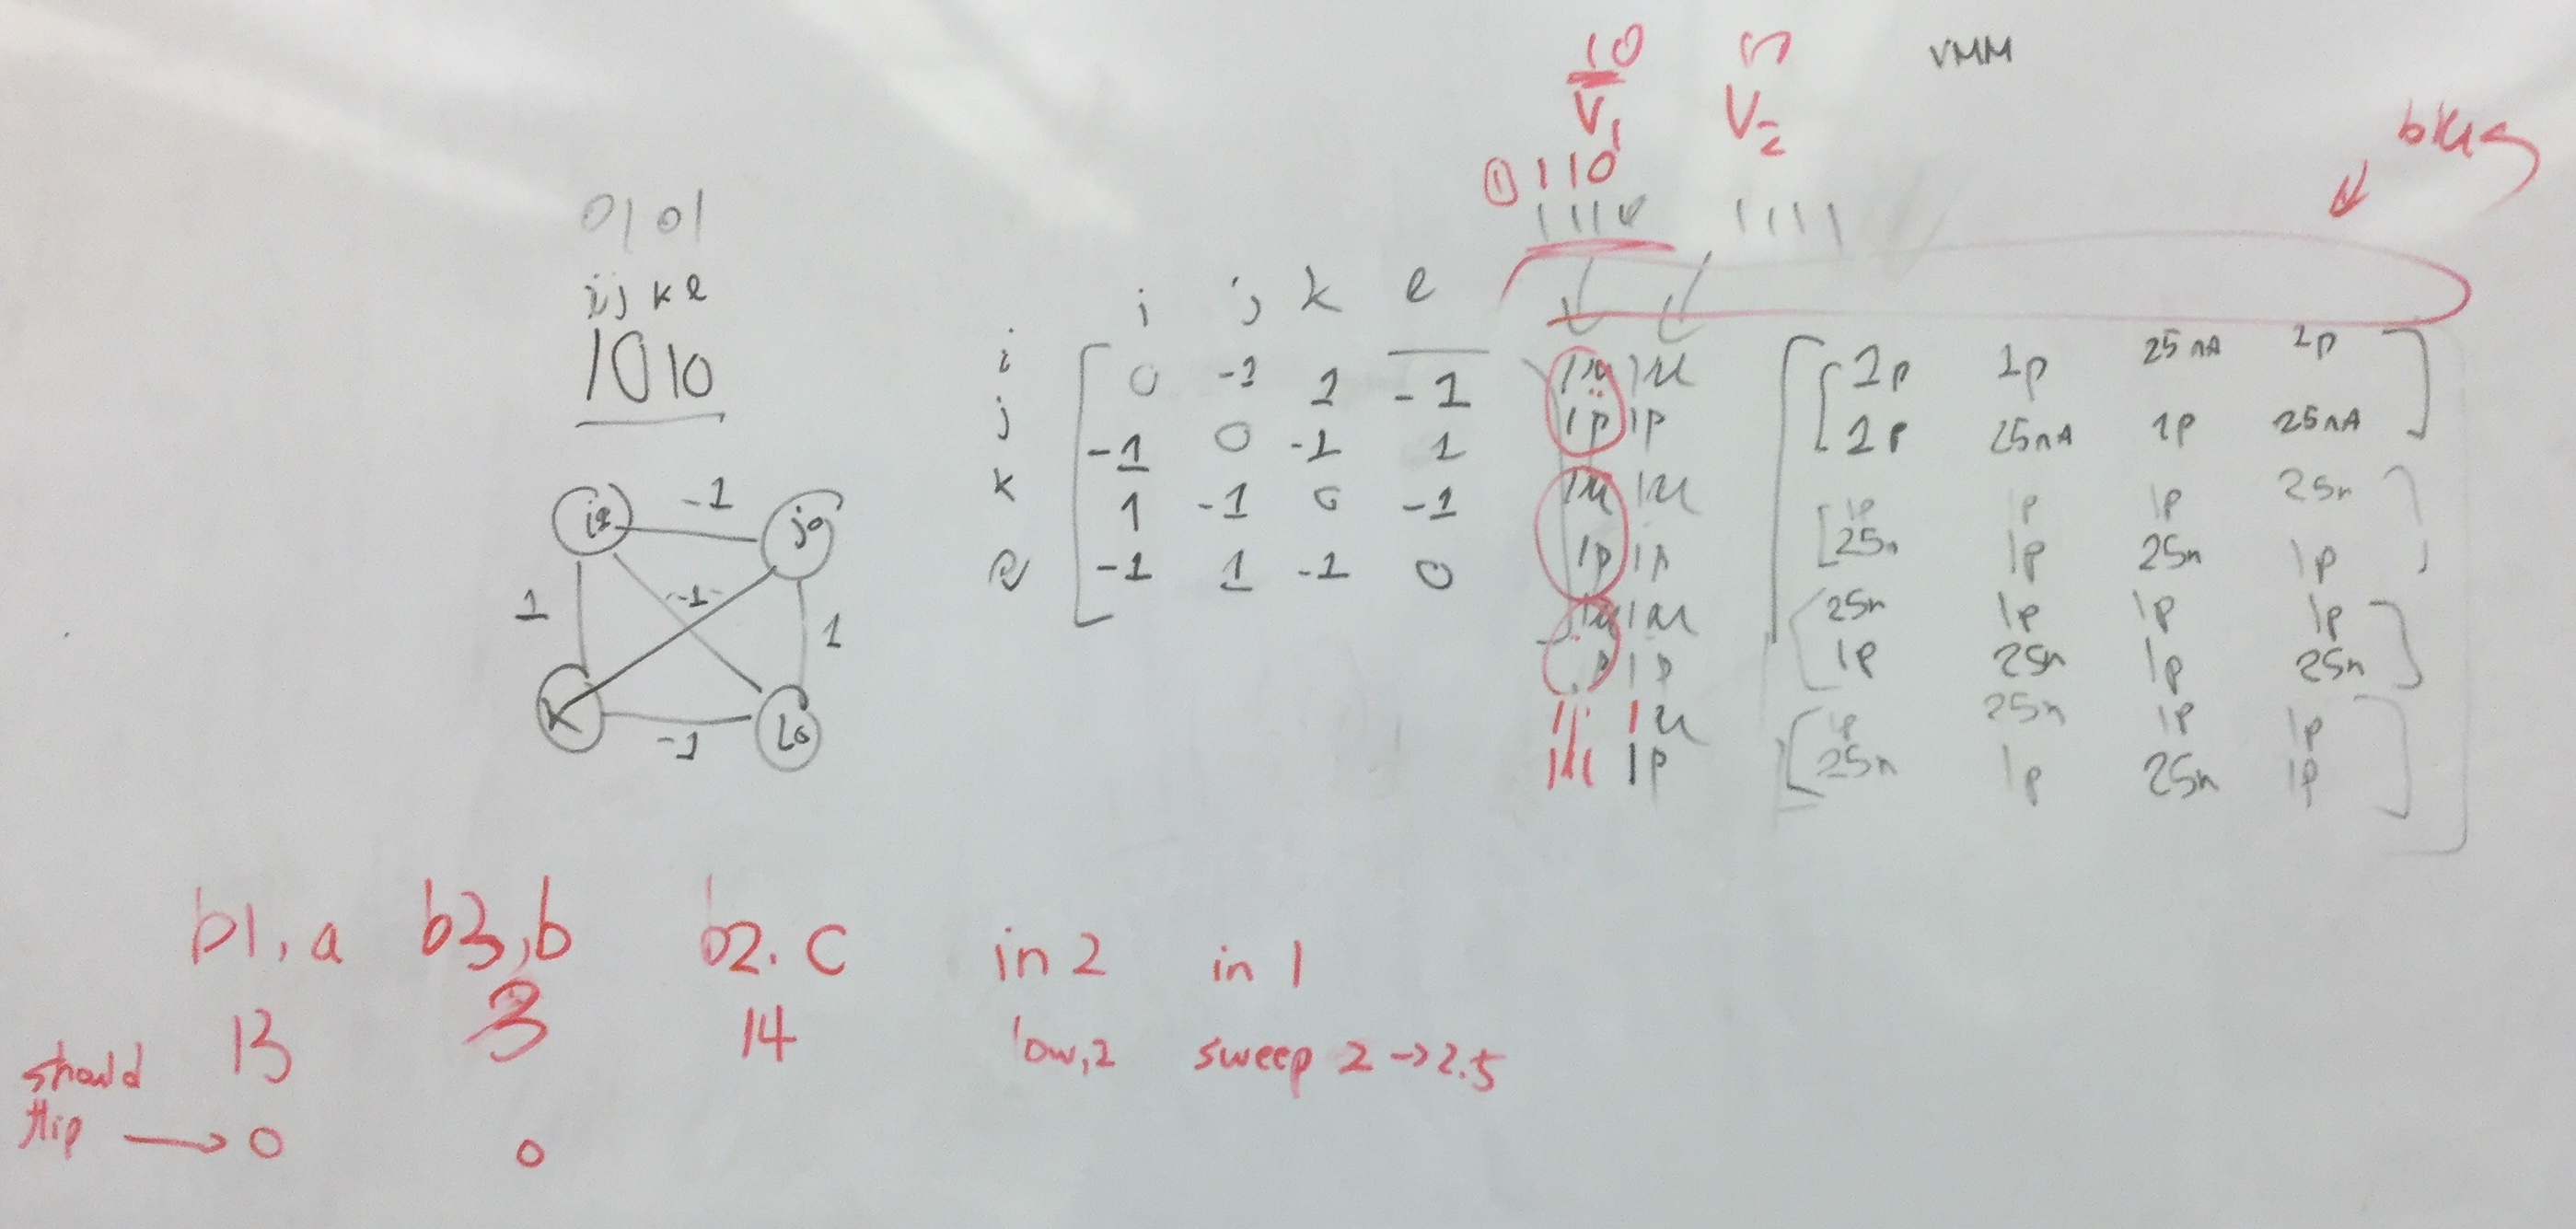 10
V1 V2 VMM
① 110
1111
bias
0101
i j k l
1010
i j k l
i 0 -1 1 -1
j -1 0 -1 1
k 1 -1 0 -1
l -1 1 -1 0
-1
1 -1 1
-1
k
1u 1u
1p 1p
1u 1u
1p 1p
1u 1u
1p
1u
1p
1p 1p 25nA 1p
1p 25nA 1p 25nA
1p 1p 1p 25n
25n 1p 25n 1p
25n 1p 1p 1p
1p 25n 1p 25n
1p 25n 1p 1p
25n 1p 25n 1p
b1, a b3, b b2. c in 2 in 1
13 3 14 low, 2 sweep 2 -> 2.5
should
flip → 0 0